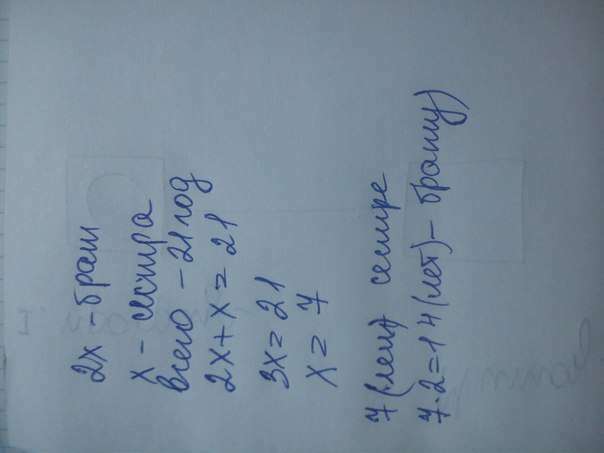 2x - брат
x - сестра
всего - 21 год
2x+x=21
3x=21
x=7
7 (лет) сестре
7·2=14(лет) - брату)